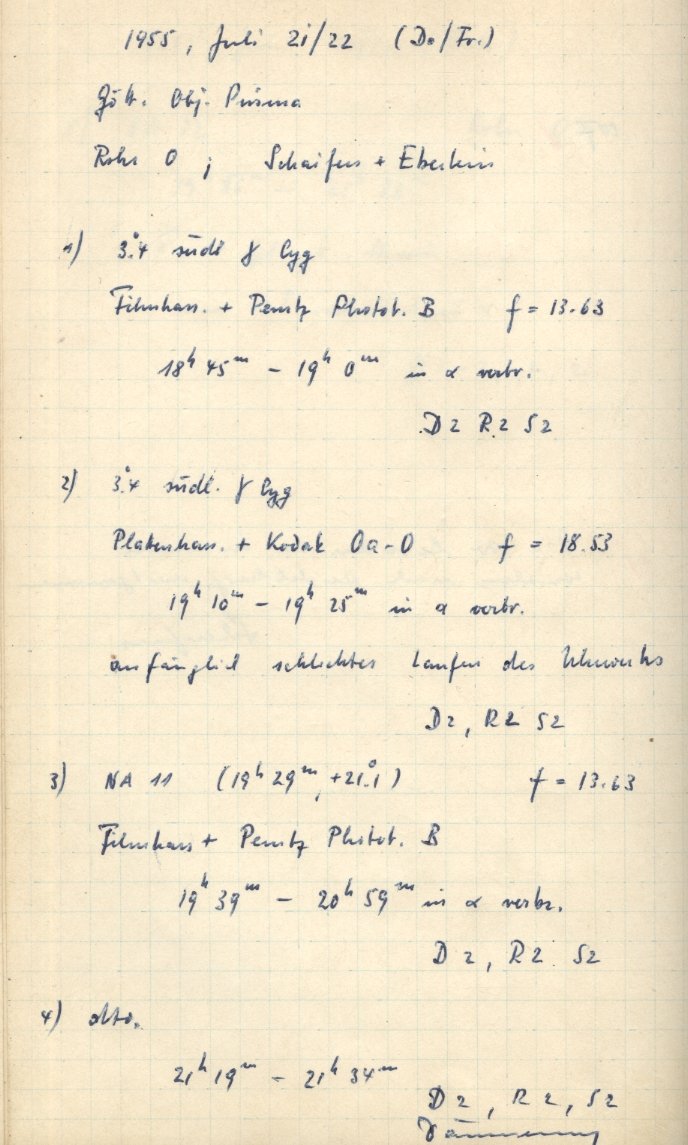 1955, Juli 21/22 (Do/Fr.)
Gött. Obj. Prisma
Rohr O ; Schaifers + Eberlein
1) 3°.4 südl γ Cyg
Filmkass. + Perutz Photot. B f = 13.63
18h 45m - 19h 0m in α verbr.
D2 R2 S2
2) 3°.4 südl. γ Cyg
Plattenkass. + Kodak Oa-O f = 18.53
19h 10m - 19h 25m in α verbr.
anfänglich schlechtes Laufen des Uhrwerks
D2, R2 S2
3) NA 11 (19h 29m, +21°.1) f = 13.63
Filmkass + Perutz Photot. B
19h 39m - 20h 59m in α verbr.
D2, R2 S2
4) dto.
21h 19m - 21h 34m
D2, R2, S2
Dämmerung